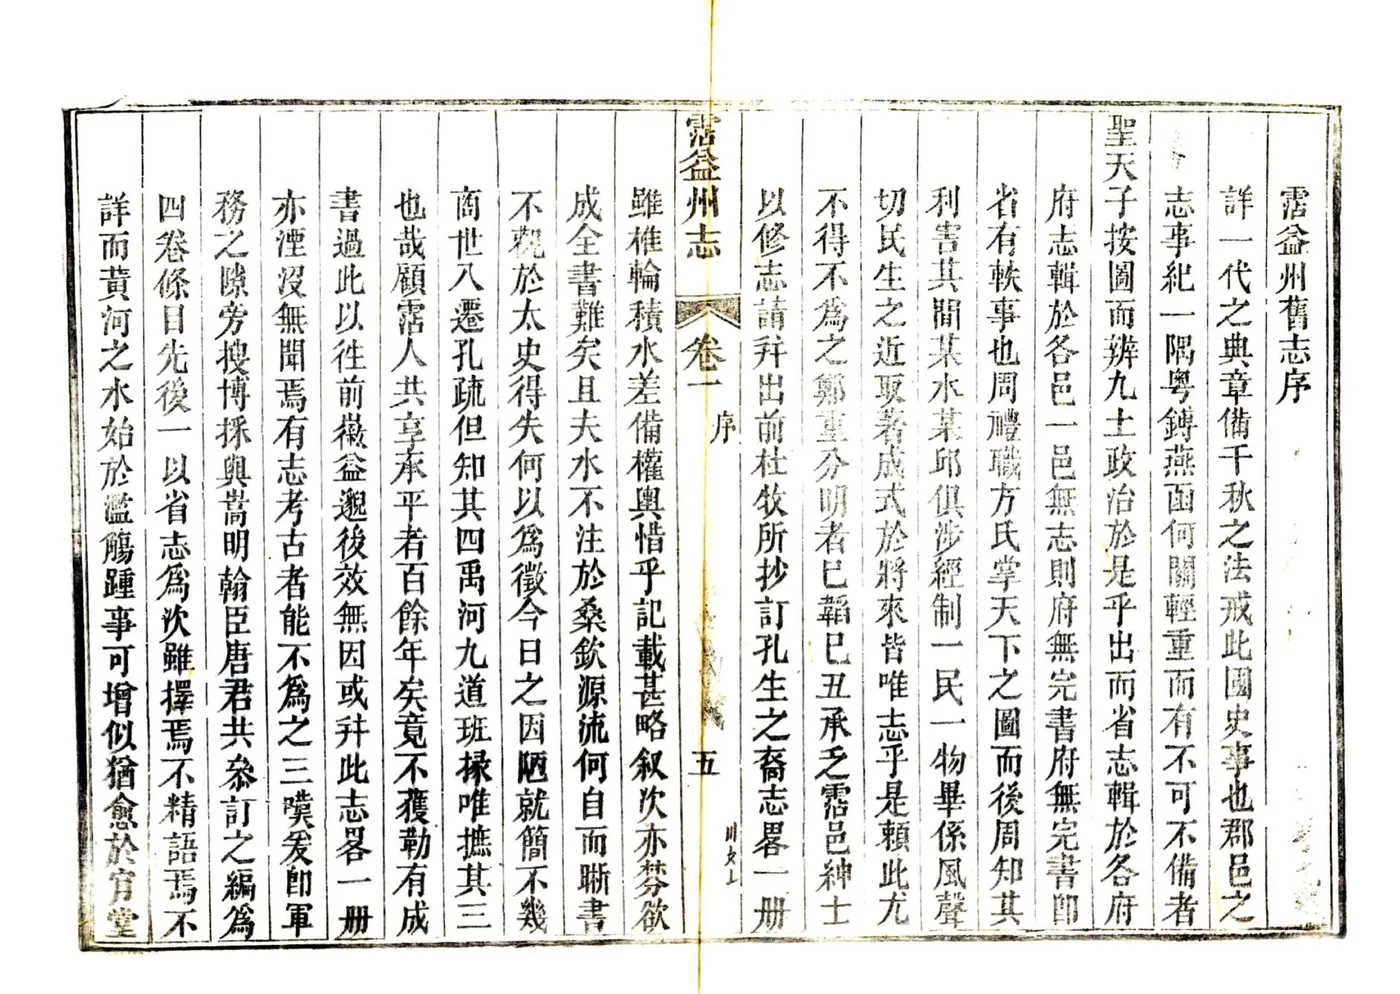 霑益州舊志序
詳一代之典章備千秋之法戒此國史事也郡邑之
志事紀一隅粤鎛燕函何關輕重而有不可不備者
聖天子按圖而辨九土政治於是乎出而省志輯於各府
府志輯於各邑一邑無志則府無完書府無完書卽
省有軼事也周禮職方氏掌天下之圖而後周知其
利害其間某水某邱俱涉經制一民一物畢係風聲
切民生之近取著成式於將來皆唯志乎是賴此尤
不得不為之鄭重分明者巳韜巳丑承乏霑邑紳士
以修志請幷出前杜牧所抄訂孔生之裔志畧一册
霑益州志
卷一
序
五
雖椎輪積水差備權輿惜乎記載甚略叙次亦棼欲
成全書難矣且夫水不注於桑欽源流何自而晰書
不覩於太史得失何以為徵今日之因陋就簡不幾
商世入遷孔疏但知其四禹河九道班掾唯摭其三
也哉顧霑人共享承平者百餘年矣竟不獲勒有成
書過此以徃前徽益邈後效無因或幷此志畧一册
亦湮沒無聞焉有志考古者能不為之三嘆爰卽軍
務之隙旁搜博採與嵩明翰臣唐君共叅訂之編為
四卷條目先後一以省志為次雖擇焉不精語焉不
詳而黄河之水始於濫觴踵事可增似猶愈於官堂